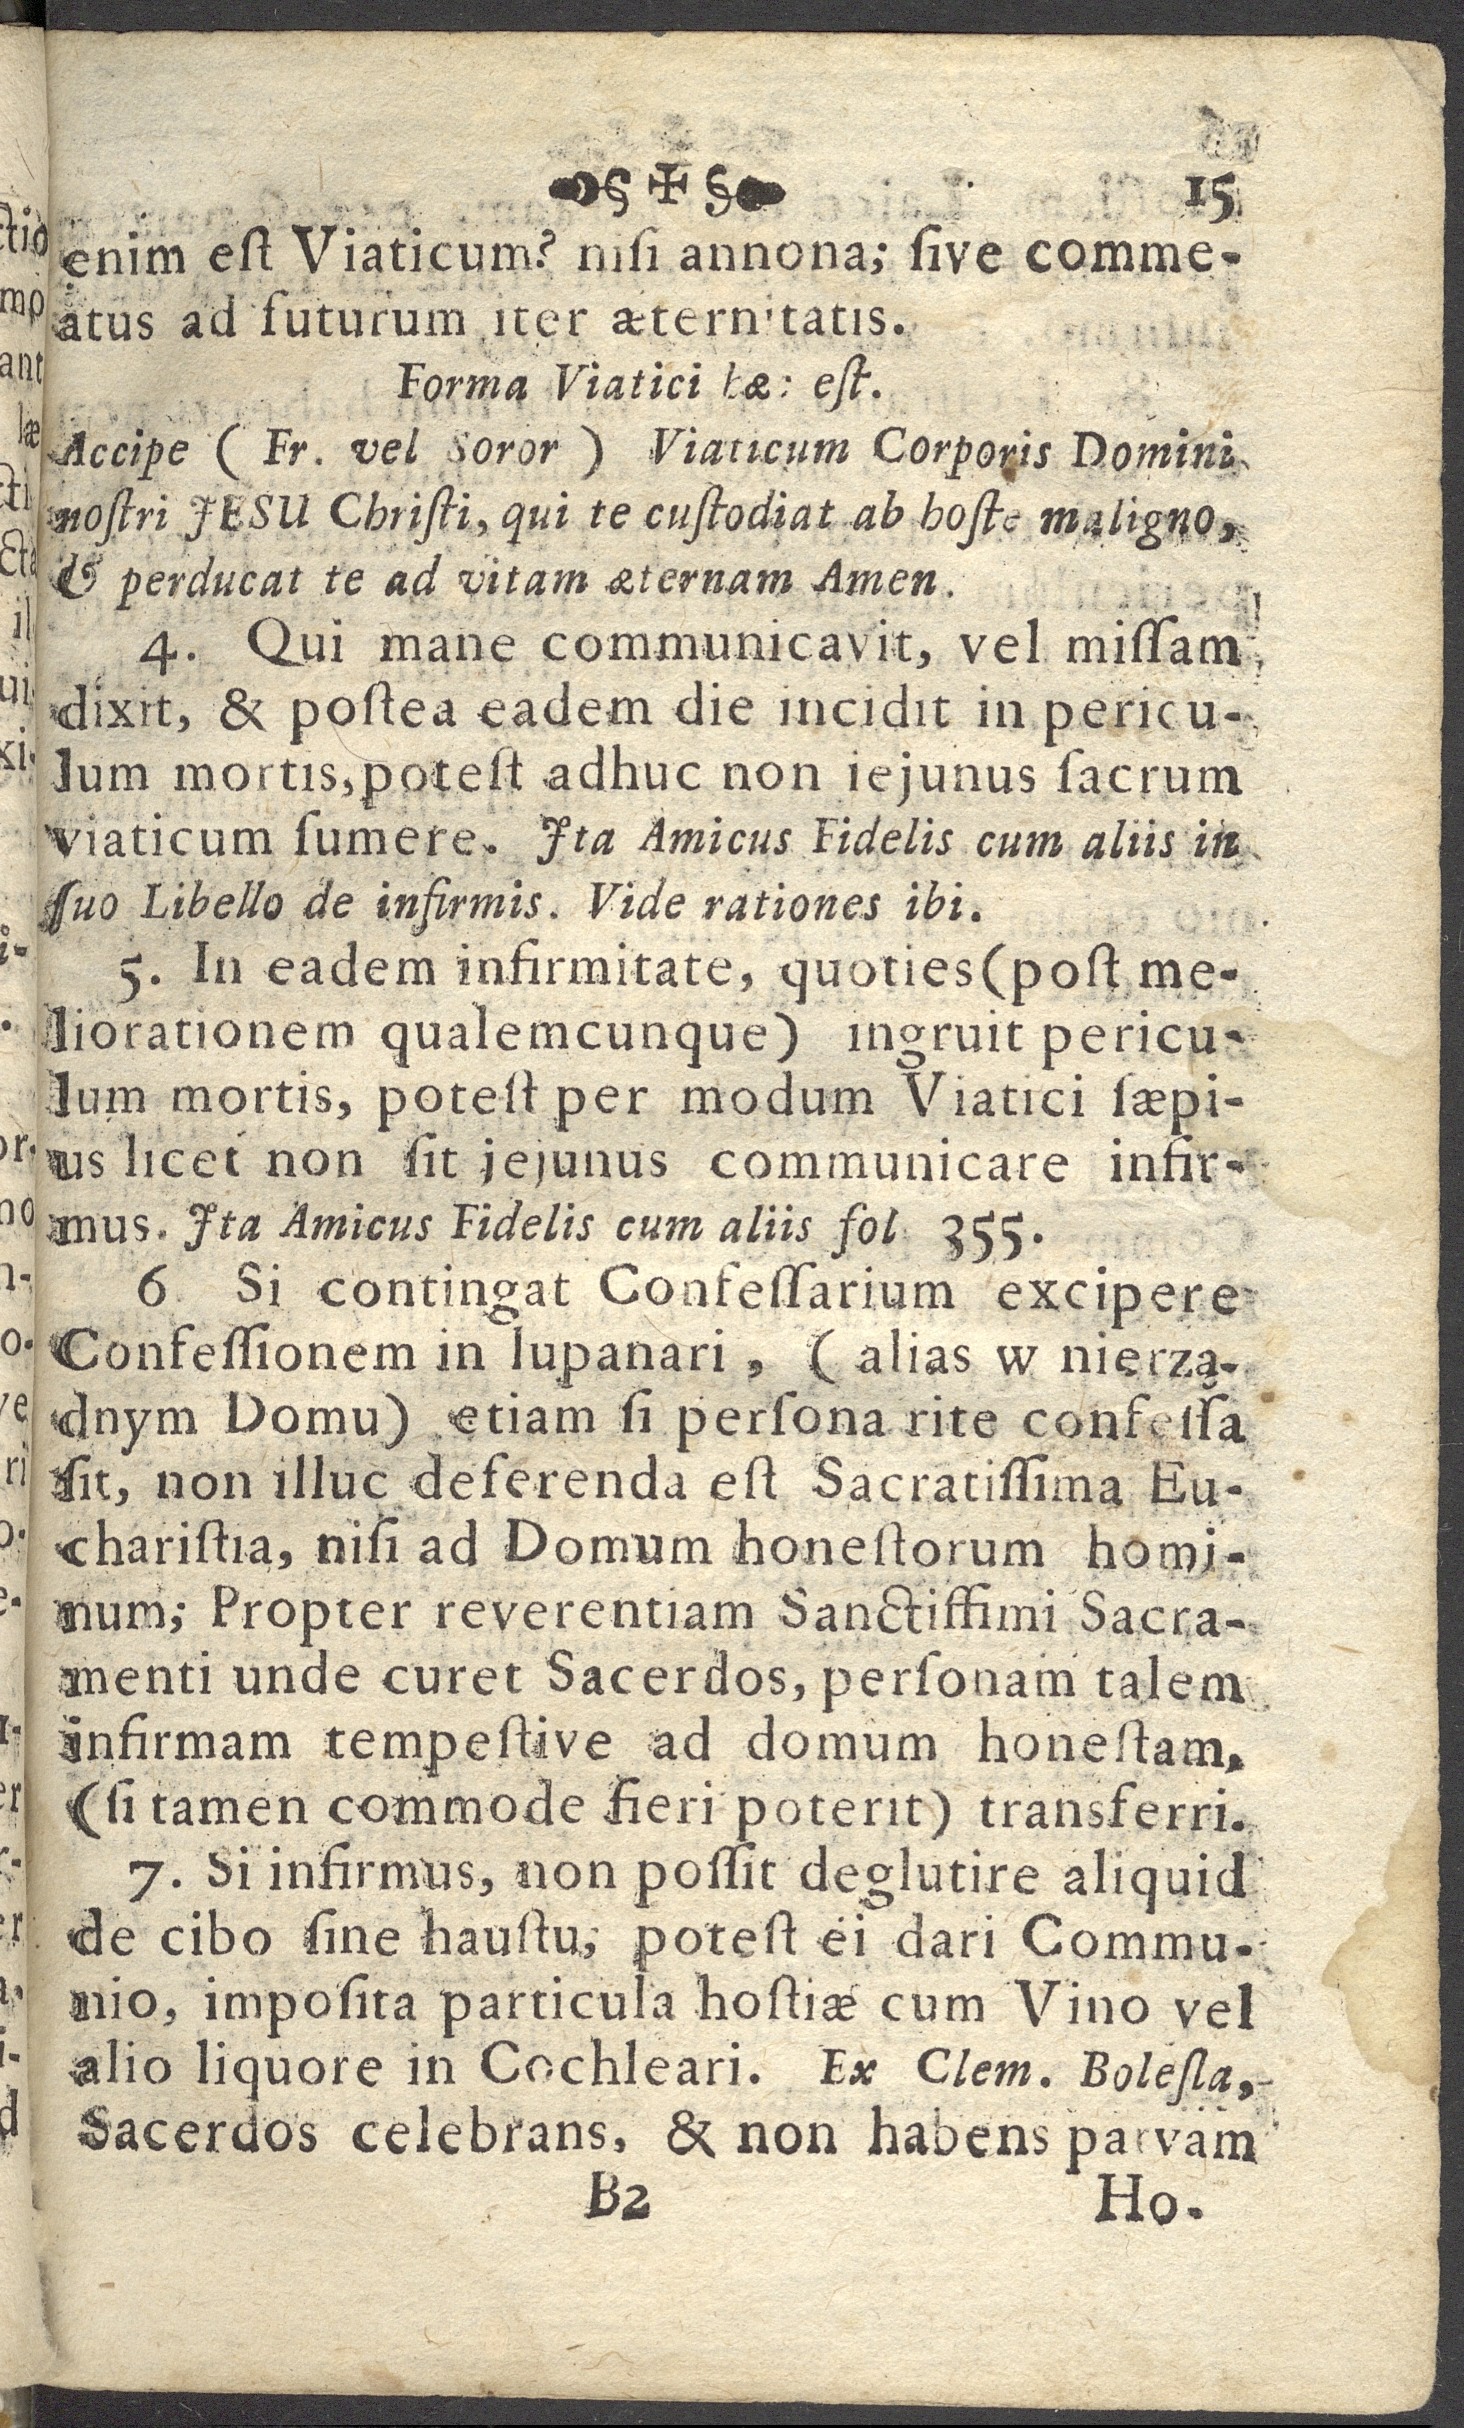 § ✠ § 15
enim eſt Viaticum? niſi annona; ſive comme-
atus ad futurum iter æternitatis.
Forma Viatici hæc eſt.
Accipe ( Fr. vel Soror ) Viaticum Corporis Domini
noſtri JESU Chriſti, qui te cuſtodiat ab hoſte maligno,
& perducat te ad vitam æternam Amen.
4. Qui mane communicavit, vel miſſam
dixit, & poſtea eadem die incidit in pericu-
lum mortis, poteſt adhuc non iejunus ſacrum
viaticum ſumere. Jta Amicus Fidelis cum aliis in
ſuo Libello de infirmis. Vide rationes ibi.
5. In eadem infirmitate, quoties (poſt me-
liorationem qualemcunque) ingruit pericu-
lum mortis, poteſt per modum Viatici ſæpi-
us licet non ſit jejunus communicare infir-
mus. Jta Amicus Fidelis cum aliis fol 355.
6 Si contingat Confeſſarium excipere
Confeſſionem in lupanari, ( alias w nierzą-
dnym Domu) etiam ſi perſona rite confeſſa
ſit, non illuc deferenda eſt Sacratiſſima Eu-
chariſtia, niſi ad Domum honeſtorum homi-
num; Propter reverentiam Sanctiſſimi Sacra-
menti unde curet Sacerdos, perſonam talem
infirmam tempeſtive ad domum honeſtam,
(ſi tamen commode fieri poterit) transferri.
7. Si infirmus, non poſſit deglutire aliquid
de cibo ſine hauſtu, poteſt ei dari Commu-
nio, impoſita particula hoſtiæ cum Vino vel
alio liquore in Cochleari. Ex Clem. Boleſla,
Sacerdos celebrans, & non habens parvam
B2 Ho-